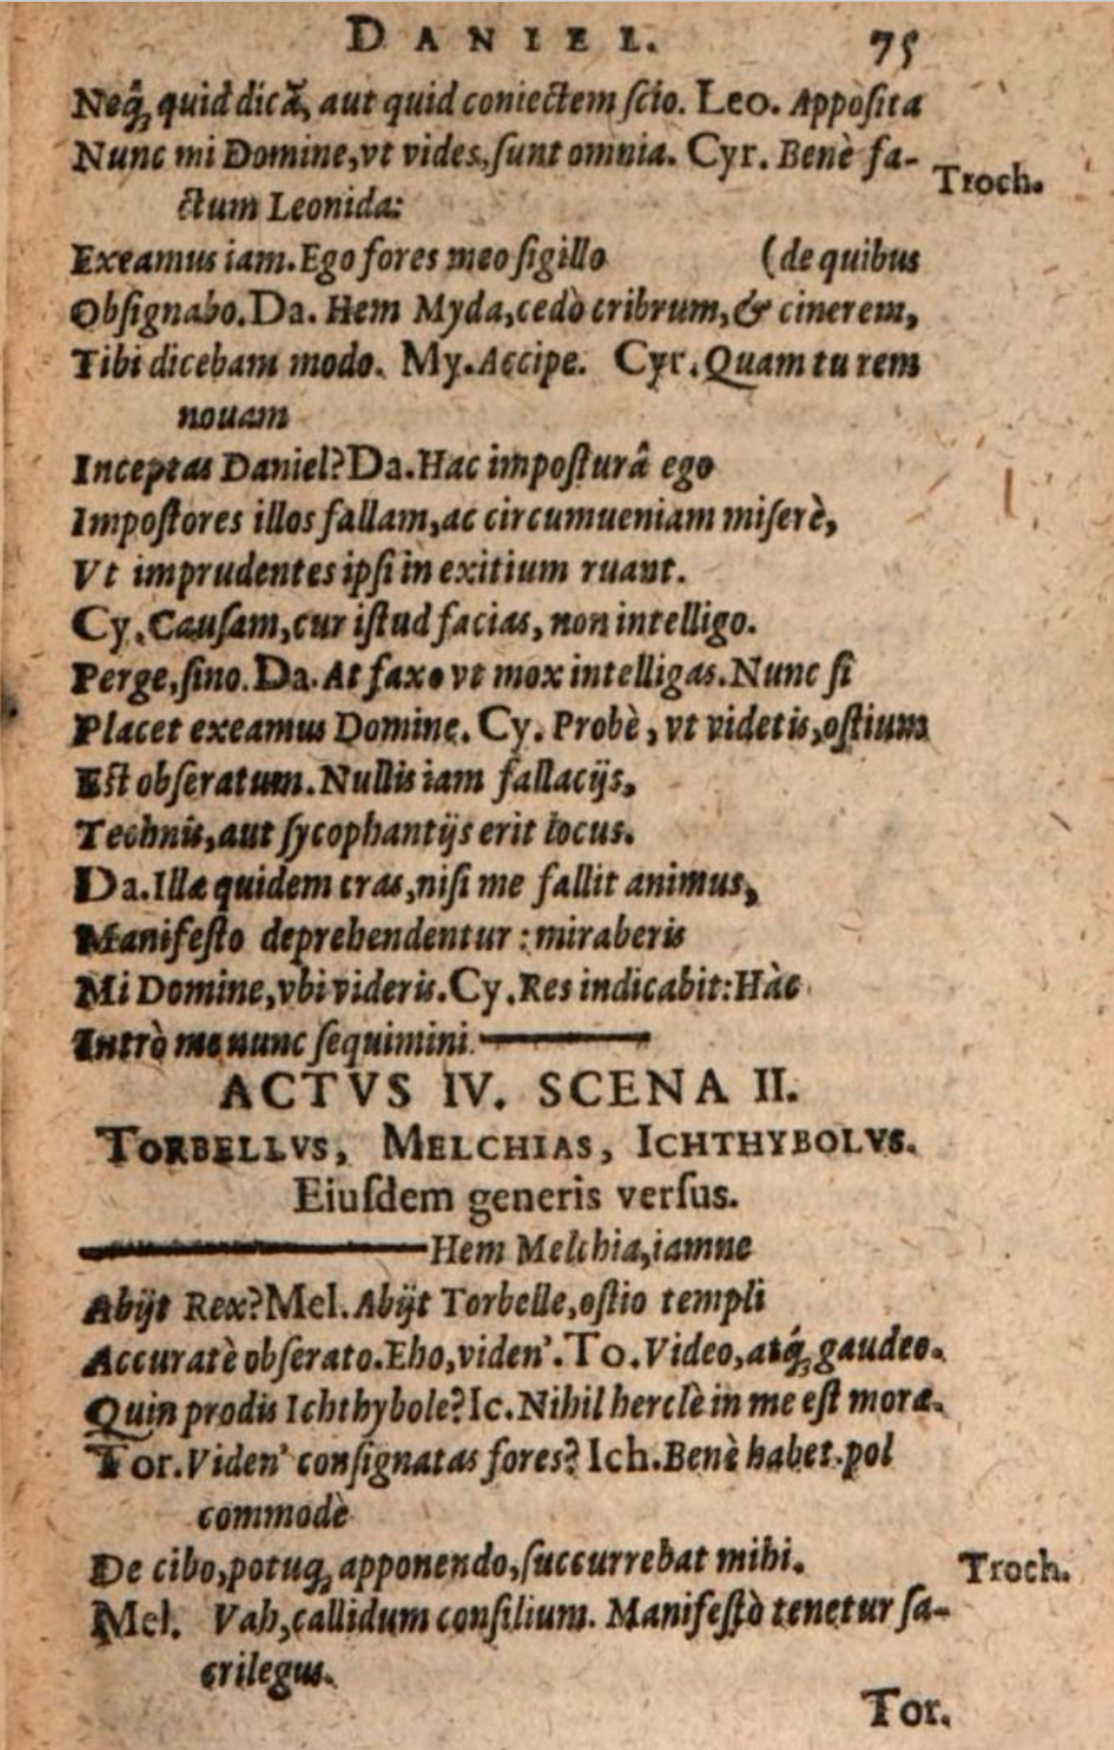 DANIEL. 75
Neq́; quid dicā, aut quid coniectem ſcio. Leo. Appoſita
Nunc mi Domine, vt vides, ſunt omnia. Cyr. Benè fa-
Troch.
ctum Leonida:
Exeamus iam. Ego fores meo ſigillo (de quibus
Obſignabo. Da. Hem Myda, cedò cribrum, & cinerem,
Tibi dicebam modo. My. Accipe. Cyr. Quam tu rem
nouam
Inceptas Daniel? Da. Hac impoſturâ ego
Impoſtores illos fallam, ac circumueniam miſerè,
Vt imprudentes ipſi in exitium ruant.
Cy. Cauſam, cur iſtud facias, non intelligo.
Perge, ſino. Da. At faxo vt mox intelligas. Nunc ſi
Placet exeamus Domine. Cy. Probè, vt videtis, oſtium
Eſt obſeratum. Nullis iam fallacijs,
Technis, aut ſycophantijs erit locus.
Da. Illæ quidem cras, niſi me fallit animus,
Manifeſto deprehendentur: miraberis
Mi Domine, vbi videris. Cy. Res indicabit: Hàc
Intrò me nunc ſequimini.
ACTVS IV. SCENA II.
TORBELLVS, MELCHIAS, ICHTHYBOLVS.
Eiuſdem generis verſus.
Hem Melchia, iamne
Abijt Rex? Mel. Abijt Torbelle, oſtio templi
Accuratè obſerato. Eho, viden'. To. Video, atq́; gaudeo.
Quin prodis Ichthybole? Ic. Nihil herclè in me eſt moræ.
Tor. Viden' conſignatas fores? Ich. Benè habet. pol
commodè
De cibo, potuq; apponendo, ſuccurrebat mihi. Troch.
Mel. Vah, callidum conſilium. Manifeſtò tenetur ſa-
crilegus.
Tor.